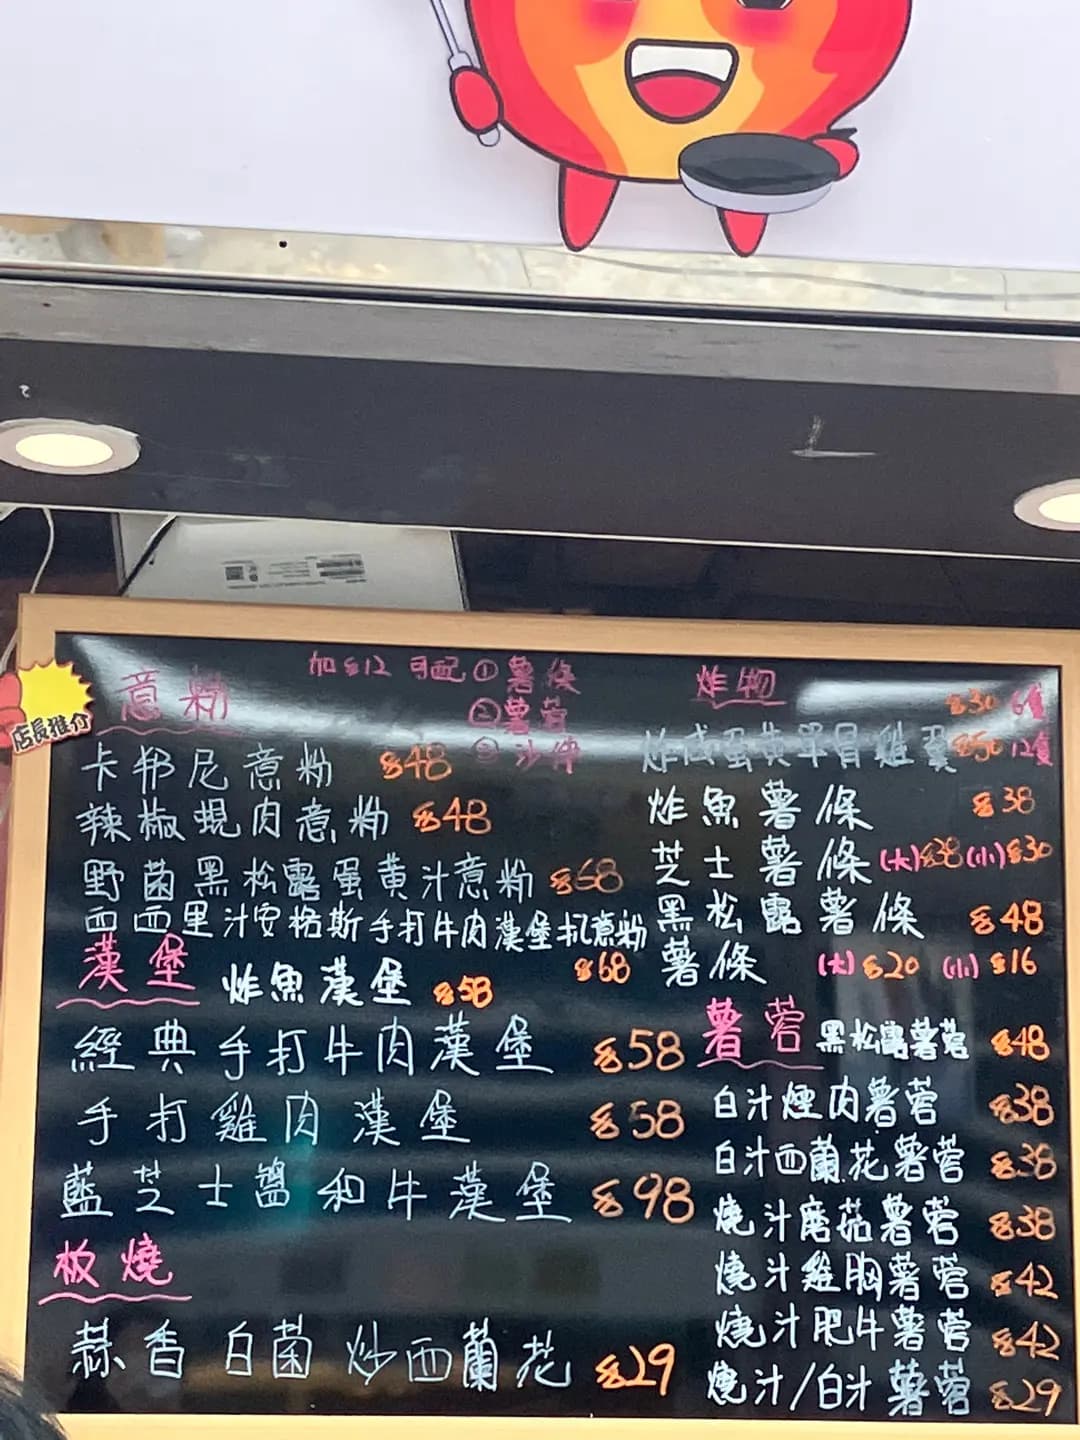 店長推介
意粉
加$12 可配 ① 薯條
② 薯蓉
③ 沙律
卡邦尼意粉 $48
辣椒蜆肉意粉 $48
野菌黑松露蛋黃汁意粉 $68
西西里汁安格斯手打牛肉漢堡扒意粉
$68
漢堡
炸魚漢堡 $58
經典手打牛肉漢堡 $58
手打雞肉漢堡 $58
藍芝士醬和牛漢堡 $98
板燒
蒜香白菌炒西蘭花 $29
炸物
$30 6隻
炸咸蛋黃單骨雞翼 $50 12隻
炸魚薯條 $38
芝士薯條 (大) $38 (小) $30
黑松露薯條 $48
薯條 (大) $20 (小) $16
薯蓉
黑松露薯蓉 $48
白汁煙肉薯蓉 $38
白汁西蘭花薯蓉 $38
燒汁磨菇薯蓉 $38
燒汁雞胸薯蓉 $42
燒汁肥牛薯蓉 $42
燒汁/白汁薯蓉 $29